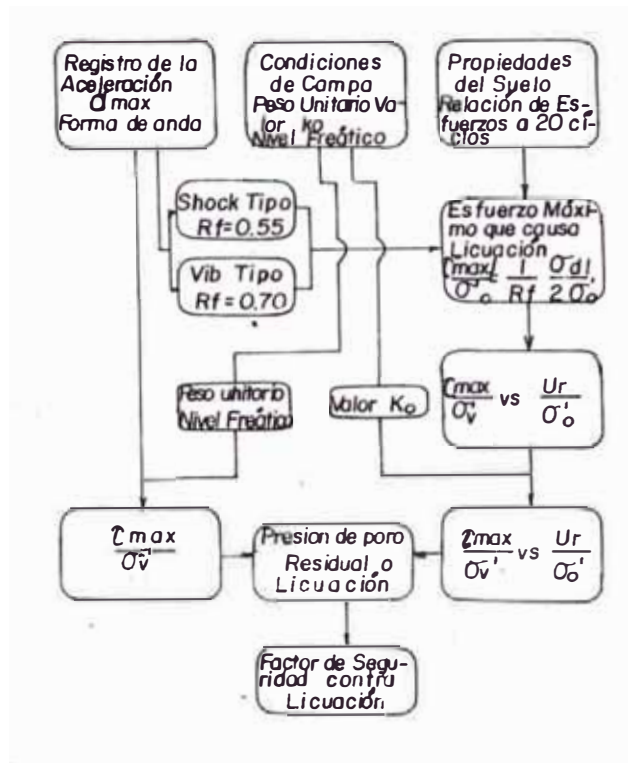 Registro de la
Aceleración
a max
Forma de anda
Condiciones
de Campa
Peso Unitario Va-
lor ko
Nivel Freático
Propiedades
del Suelo
Relación de Es-
fuerzos a 20 ci-
clos
Shock Tipo
Rf=0.55
Vib Tipo
Rf=0.70
Esfuerzo Máxi-
mo que causa
Licuación
τmax/σ'o = 1/Rf σdl/2σ'o
Peso unitario
Nivel Freático
Valor Ko
τmax/σ'v vs Ur/σ'o
τmax/σ'v
Presion de poro
Residual o
Licuación
τmax/σv' vs Ur/σo'
Factor de Segu-
ridad contra
Licuación